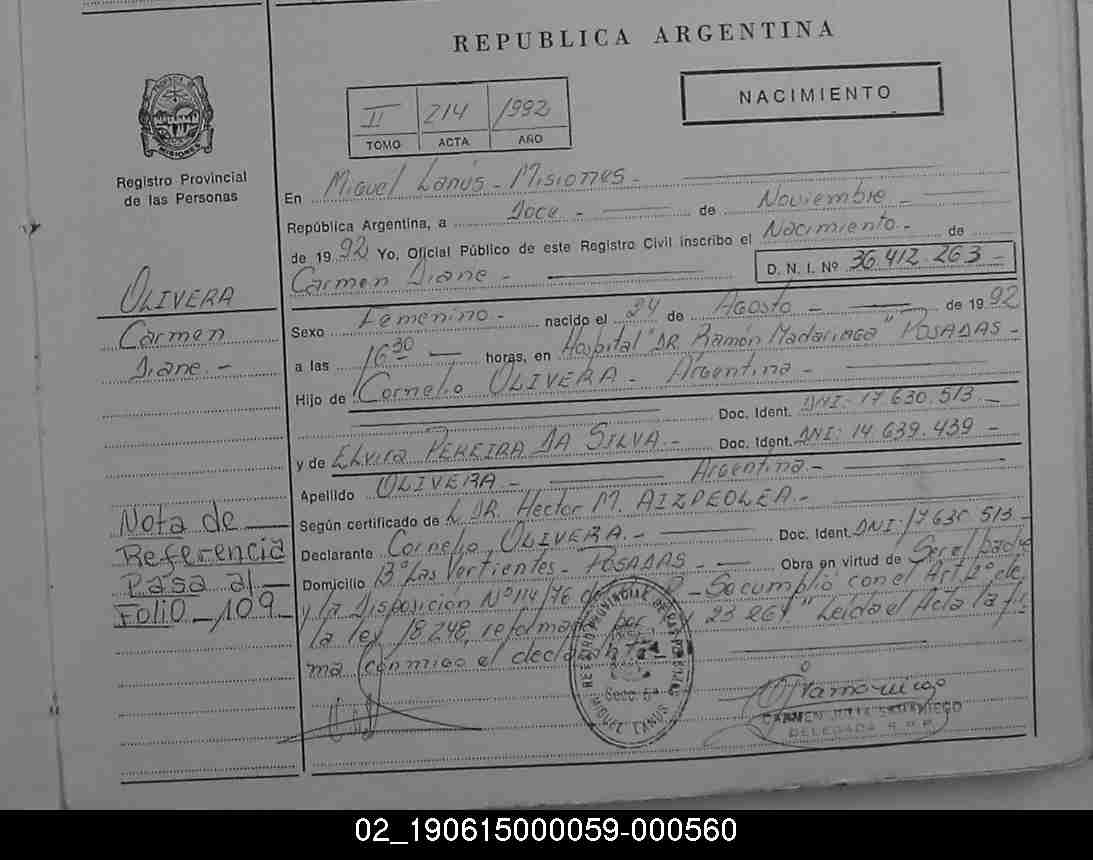 REPUBLICA ARGENTINA
NACIMIENTO
II 214 1992
TOMO ACTA AÑO
PROVINCIA DE MISIONES
Registro Provincial
de las Personas
OLIVERA
Carmen
Diane.-
Nota de
Referencia
Pasa al
Folio 109
En Miguel Lanús - Misiones -
República Argentina, a Doce - de Noviembre -
de 1992 Yo, Oficial Público de este Registro Civil inscribo el Nacimiento.- de
Carmen Diane - D. N. I. Nº 36.412.263 -
Sexo Femenino - nacido el 24 de Agosto - de 1992
a las 16 30 horas, en Hospital "DR. Ramón Madariaga" POSADAS -
Hijo de Cornelio OLIVERA - Argentina -
Doc. Ident. DNI: 17.630.513 -
y de Elvira PEREIRA DA SILVA.- Doc. Ident. DNI: 14.639.439 -
Argentina.-
Apellido OLIVERA -
Según certificado de DR. Hector M. AIZPEOLEA.-
Declarante Cornelio OLIVERA.- Doc. Ident. DNI: 17630.513 -
Domicilio Bº Las Vertientes - POSADAS - Obra en virtud de Ser el padre
y la Disposición Nº 114/76 Se cumplió con el Art 2º de
la ley 18.248, reformada por 23.264 " Leida el Acta la fir
ma conmigo el declarante
REGISTRO PROVINCIAL DE LAS PERSONAS
Secc. 5ª
MIGUEL LANUS
CARMEN JULIA SAMANIEGO
DELEGADA R.P.P.
02_190615000059-000560